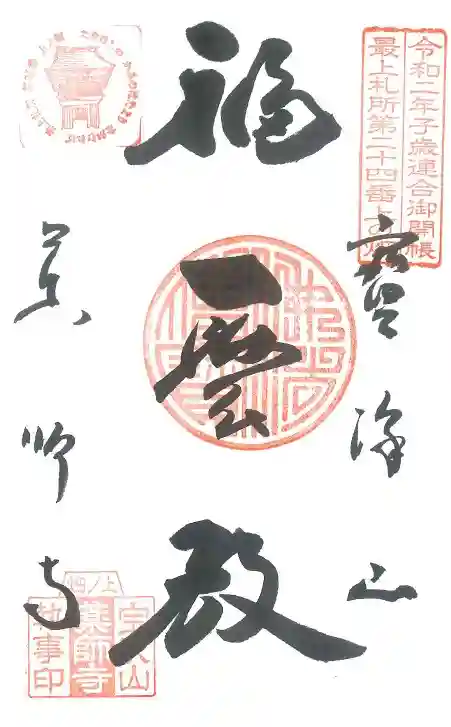 令和二年子歳連合御開帳
最上札所第二十四番上の畑
寶澤山
福雲殿
薬師寺
上ノ畑
薬師寺
執事印